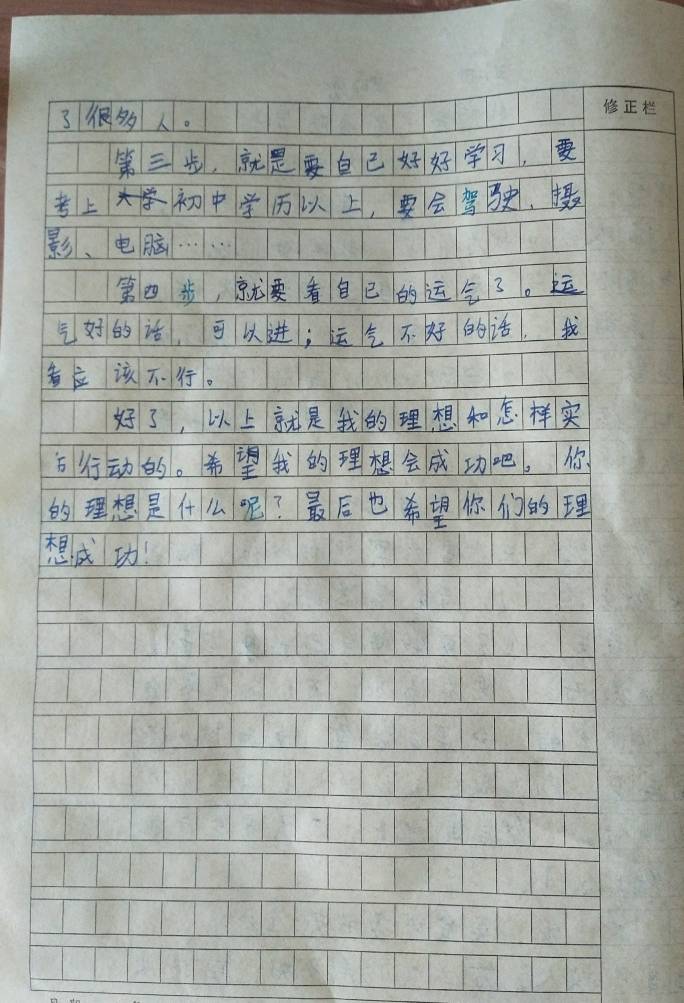 修正栏
了很多人。
第三步，就是要自己好好学习，要
考上大学初中学历以上，要会驾驶、摄
影、电脑……
第四步，就要看自己的运气了。运
气好的话，可以进；运气不好的话，我
看应该不行。
好了，以上就是我的理想和怎样实
行动的。希望我的理想会成功吧。你
的理想是什么呢？最后也希望你们的理
想成功！